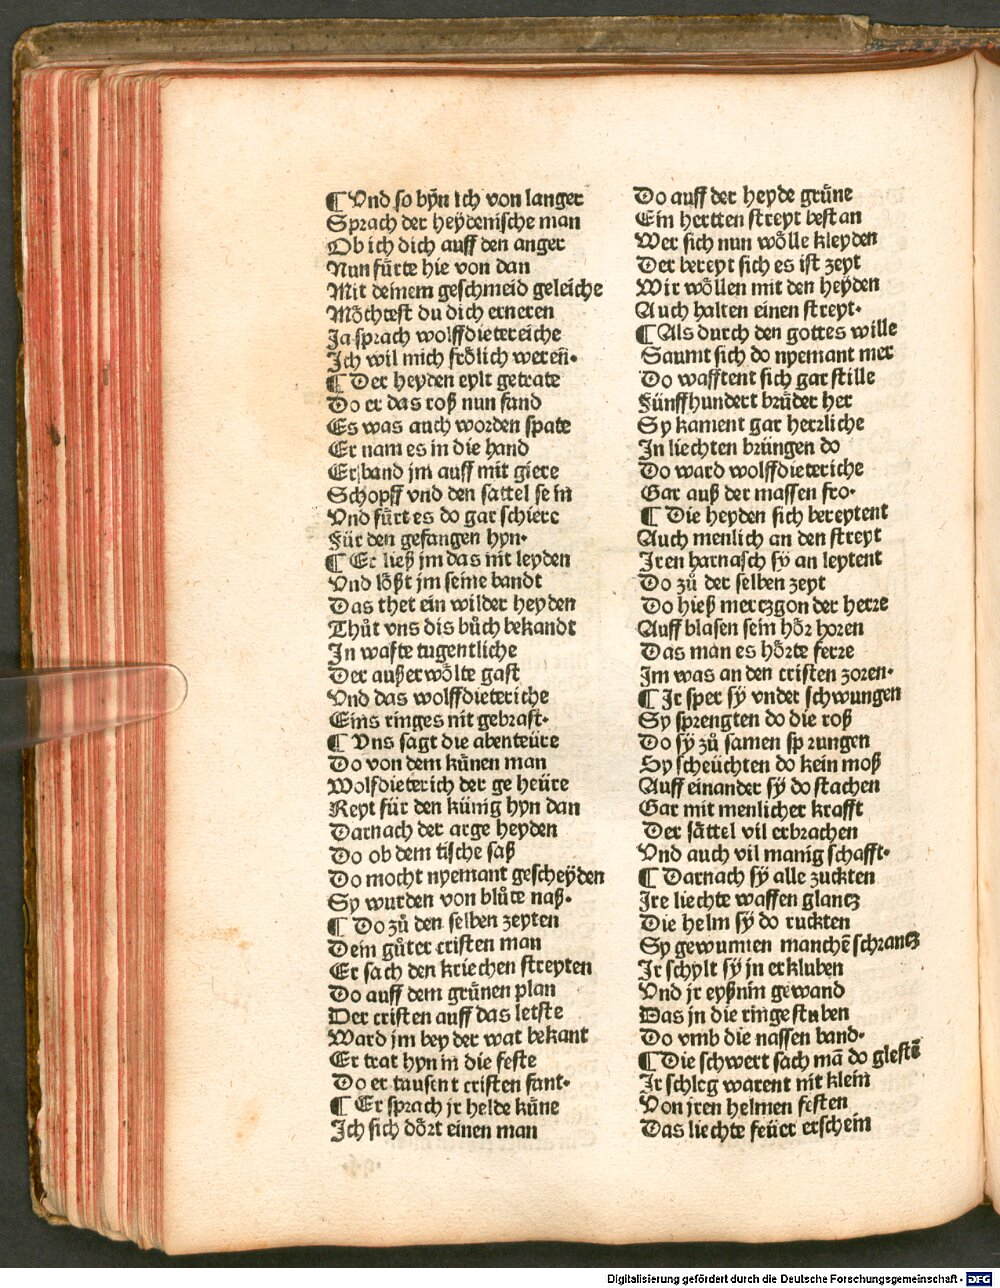 ¶ Vnd so bÿn ich von langer
Sprach der heÿdenische man
Ob ich dich auff den anger
Nun fürte hie von dan
Mit deinem geschmeid geleiche
Möchtest du dich erneren
Ja sprach wolffdietereiche
Ich wil mich frölich weren̄.
¶ Der heyden eylt getrate
Do er das roß nun fand
Es was auch worden spate
Er nam es in die hand
Er band jm auff mit giere
Schopff vnd den sattel sein
Vnd fu̍rt es do gar schiere
Für den gefangen hyn.
¶ Er ließ jm das nit leyden
Vnd lößt jm seine bandt
Das thet ein wilder heyden
Thůt vns dis bůch bekandt
In wafte tugentliche
Der außer wölte gast
Vnd das wolffdieteriche
Eins ringes nit gebrast.
¶ Vns sagt die abenteüre
Do von dem künen man
Wolfdieterich der ge heüre
Reyt für den künig hyn dan
Darnach der arge heyden
Do ob dem tische saß
Do mocht nyemant gescheÿden
Sy wurden von blůte naß.
¶ Do zů den selben zeyten
Dem gůter cristen man
Er sach den kriechen streyten
Do auff dem grünen plan
Der cristen auff das letste
Ward jm bey der wat bekant
Er trat hyn in die feste
Do er tausent cristen fant.
¶ Er sprach jr helde küne
Ich sich dört einen man
Do auff der heyde grüne
Ein hertten streyt bestan
Wer sich nun wölle kleyden
Der bereyt sich es ist zeyt
Wir wöllen mit den heÿden
Auch halten einen streyt.
¶ Als durch den gottes wille
Saumt sich do nyemant mer
Do wafftent sich gar stille
Fünffhundert brüder her
Sy kament gar herzliche
In liechten brüngen do
Do ward wolffdieteriche
Gar auß der massen fro.
¶ Die heyden sich bereytent
Auch menlich an den streyt
Iren harnasch sÿ an leytent
Do zů der selben zeyt
Do hieß merczgon der herre
Auff blasen sein hör horen
Das man es hörte ferre
Im was an den cristen zoren.
¶ Ir sper sÿ vnder schwungen
Sy sprengten do die roß
Do sÿ zů samen sprungen
Sy scheüchten do kein moß
Auff einander sÿ do stachen
Gar mit menlicher krafft
Der sättel vil erbrachen
Vnd auch vil manig schafft.
¶ Darnach sÿ alle zuckten
Ire liechte waffen glancz
Die helm sÿ do ruckten
Sy gewumien manchē schrancz
Ir schylt sÿ jn erkluben
Vnd jr eyßnin gewand
Das jn die ringe stuben
Do vmb die nassen band.
¶ Die schwert sach mā do glestē
Ir schleg warent nit klein
Von jren helmen festen
Das liechte feüer erschein
Digitalisierung gefördert durch die Deutsche Forschungsgemeinschaft - DFG